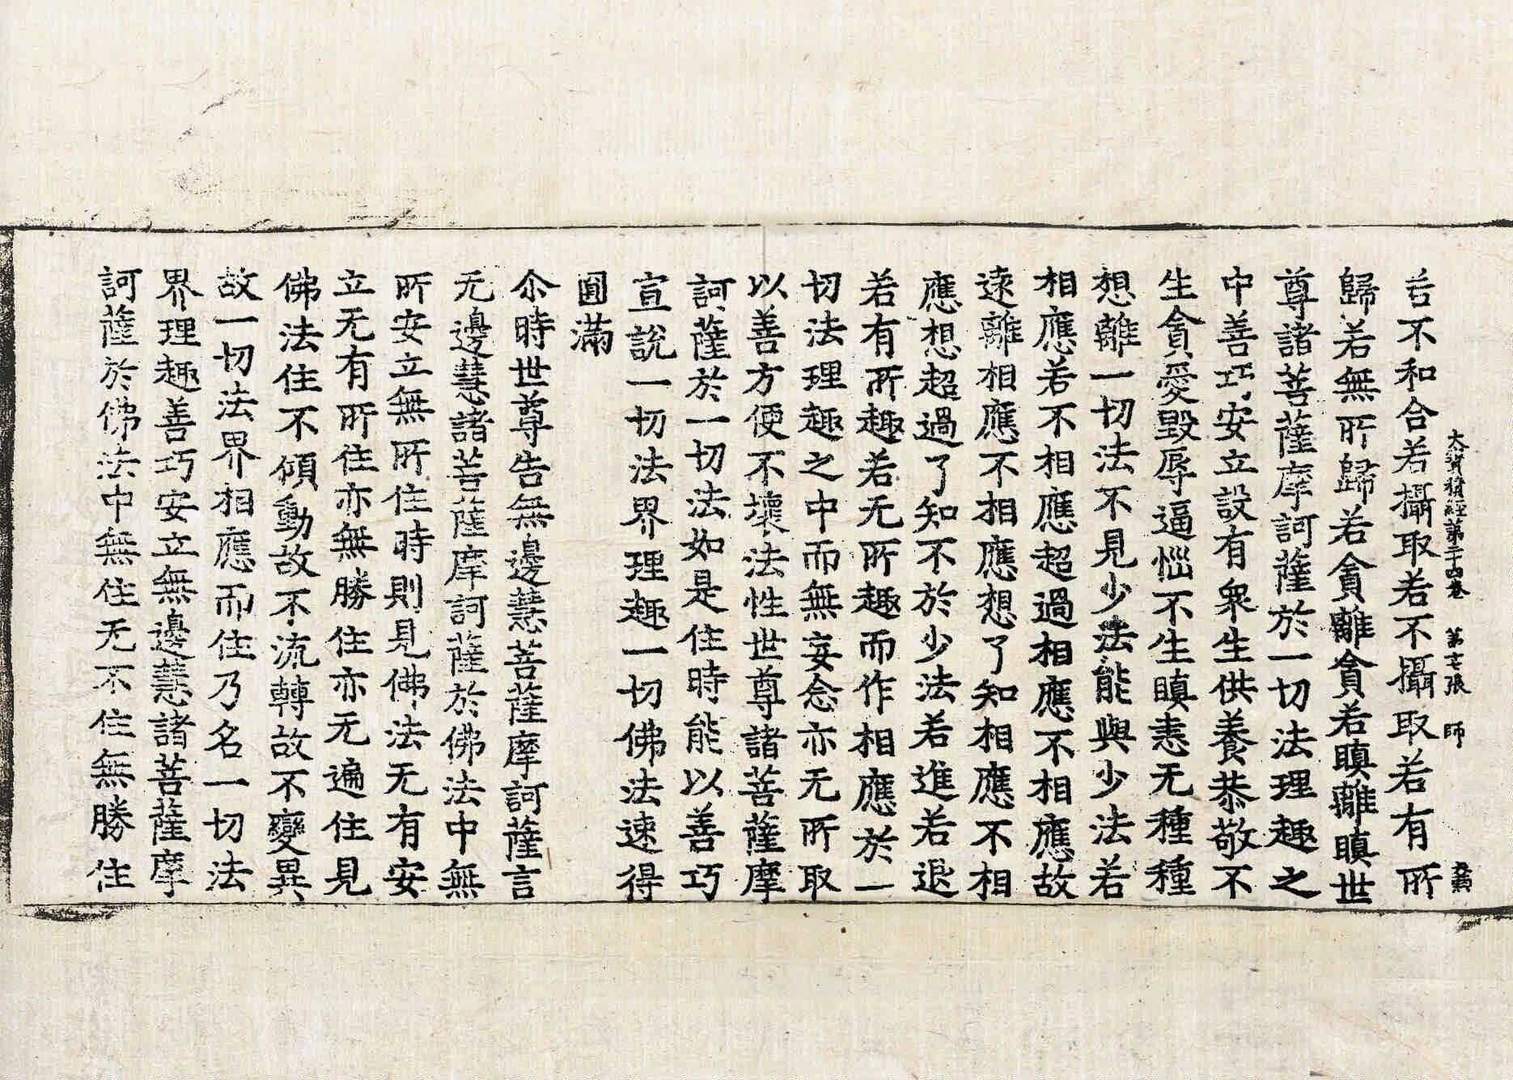 大寳積經第二十四卷 第十七張 師
若不和合若攝取若不攝取若有所
歸若無所歸若貪離貪若瞋離瞋世
尊諸菩薩摩訶薩於一切法理趣之
中善巧安立設有衆生供養恭敬不
生貪愛毀辱逼惱不生瞋恚无種種
想離一切法不見少法能與少法若
相應若不相應超過相應不相應故
遠離相應不相應想了知相應不相
應想超過了知不於少法若進若退
若有所趣若无所趣而作相應於一
切法理趣之中而無妄念亦无所取
以善方便不壞法性世尊諸菩薩摩
訶薩於一切法如是住時能以善巧
宣說一切法界理趣一切佛法速得
圓滿
尒時世尊告無邊慧菩薩摩訶薩言
无邊慧諸菩薩摩訶薩於佛法中無
所安立無所住時則見佛法无有安
立无有所住亦無勝住亦无遍住見
佛法住不傾動故不流轉故不變異
故一切法界相應而住乃名一切法
界理趣善巧安立無邊慧諸菩薩摩
訶薩於佛法中無住无不住無勝住